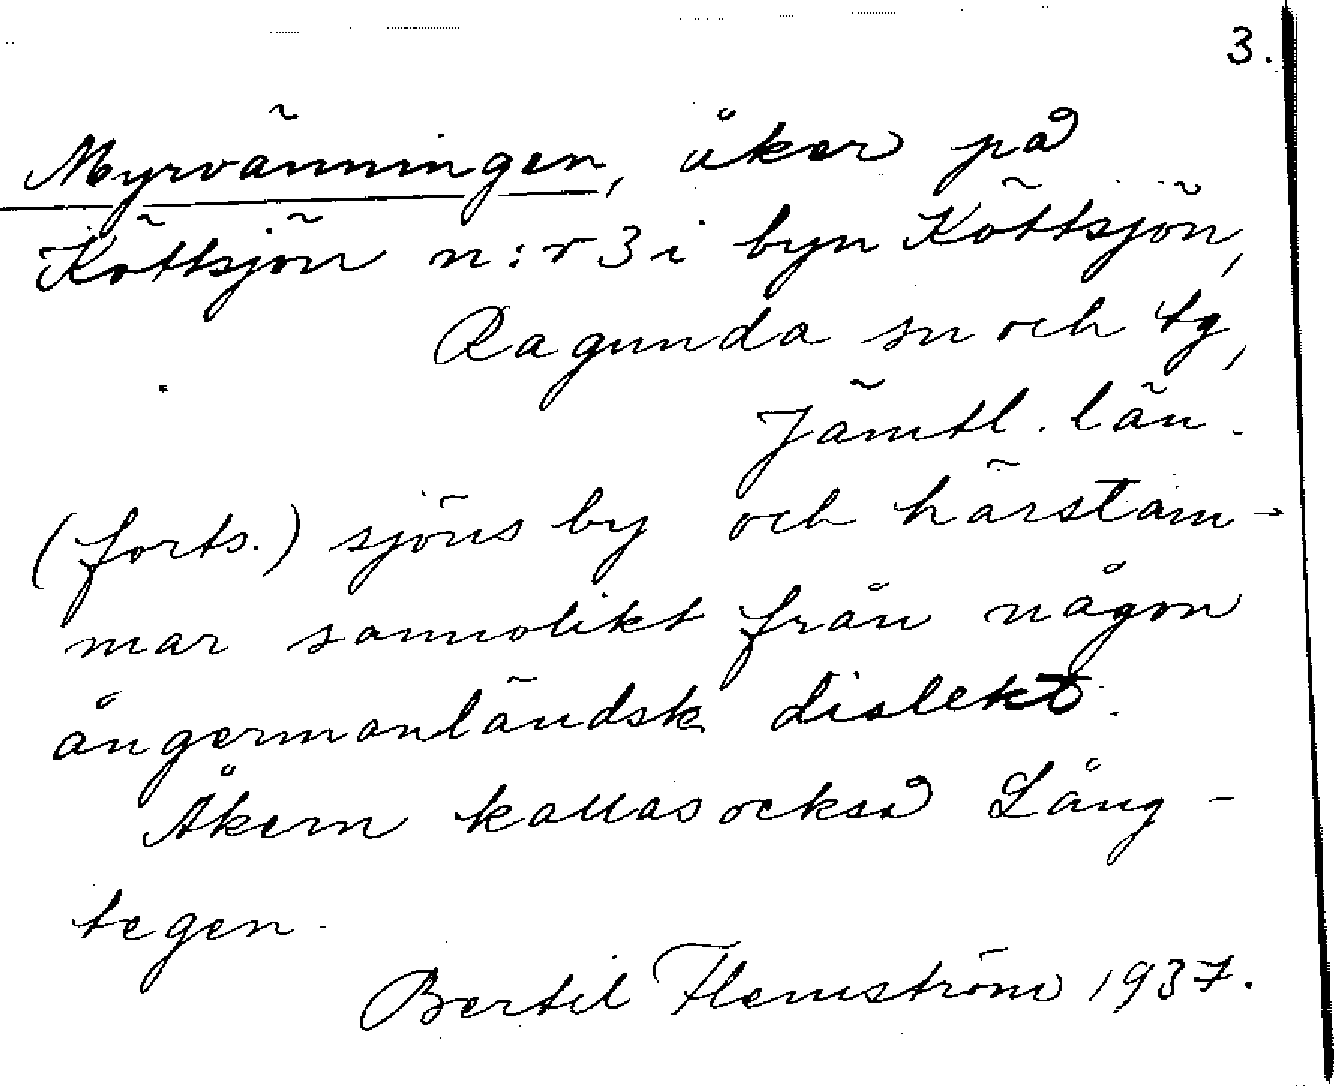 3.
Myrvänningen, åker på
Köttsjön n:r 3 i byn Köttsjön,
Ragunda sn och tg,
Jämtl. län.
(forts.) sjöns by och härstam-
mar sannolikt från någon
ångermanländsk dialekt.
Åkern kallas också Lång-
tegen.
Bertil Flemström 1937.